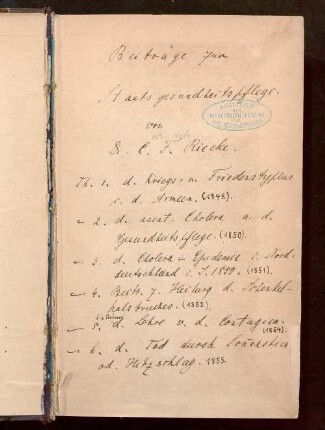 Beiträge zur
Staatsgesundheitspflege.
von
Dr. C. F. Riecke.
Th. 1. d. Kriegs- u. Friedenstyphus
i. d. Armeen. (1848).
— 2. d. asiat. Cholera u. d.
Gesundheitspflege. (1850).
— 3. d. Cholera-Epidemie i. Nord-
deutschland i. J. 1850. (1851).
— 4. Beitr. z. Heilung d. Schenkel-
halsbruches. (1852).
— 5. d. Lehre v. d. Contagien.
(1854).
— 6. d. Tod durch Sonnenstich
od. Hitzschlag. 1855.